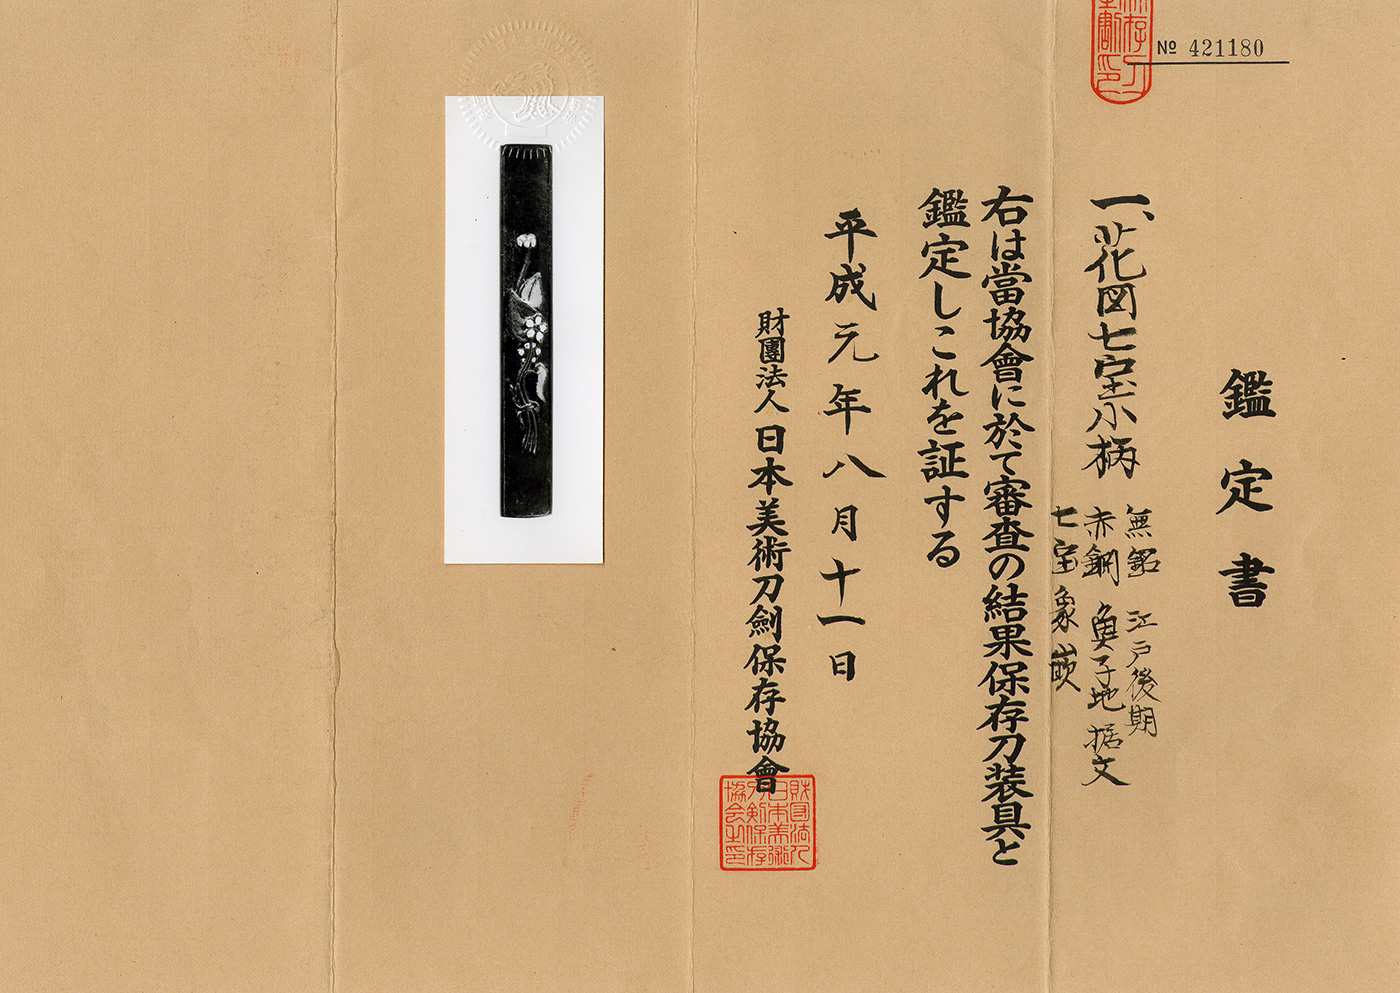 № 421180
鑑定書
一、花図七宝小柄
無銘 江戸後期
赤銅 魚子地 据文
七宝象嵌
右は當協會に於て審査の結果保存刀装具と
鑑定しこれを証する
平成元年八月十一日
財團法人日本美術刀劍保存協會
財団法人
日本美術
刀剣保存
協会之印